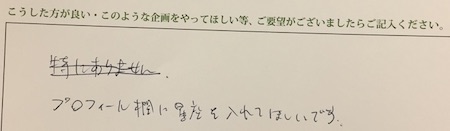 こうした方が良い・このような企画をやってほしい等、ご要望がございましたらご記入ください。
特にありません.
プロフィール欄に星座を入れてほしいです.